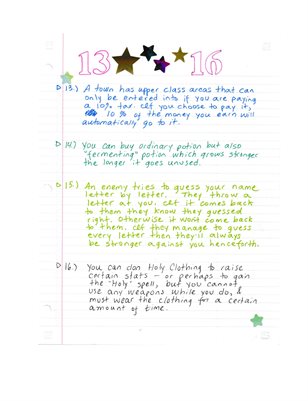 13 16
13.) A town has upper class areas that can
only be entered into if you are paying
a 10% tax. If you choose to pay it,
10% of the money you earn will
automatically go to it.
14.) You can buy ordinary potion but also
"fermenting" potion which grows stronger
the longer it goes unused.
15.) An enemy tries to guess your name
letter by letter. They throw a
letter at you. If it comes back
to them they know they guessed
right. Otherwise it wont come back
to them. If they manage to guess
every letter then they'll always
be stronger against you henceforth.
16.) You can don Holy Clothing to raise
certain stats – or perhaps to gain
the "Holy" spell, but you cannot
use any weapons while you do, &
must wear the clothing for a certain
amount of time.